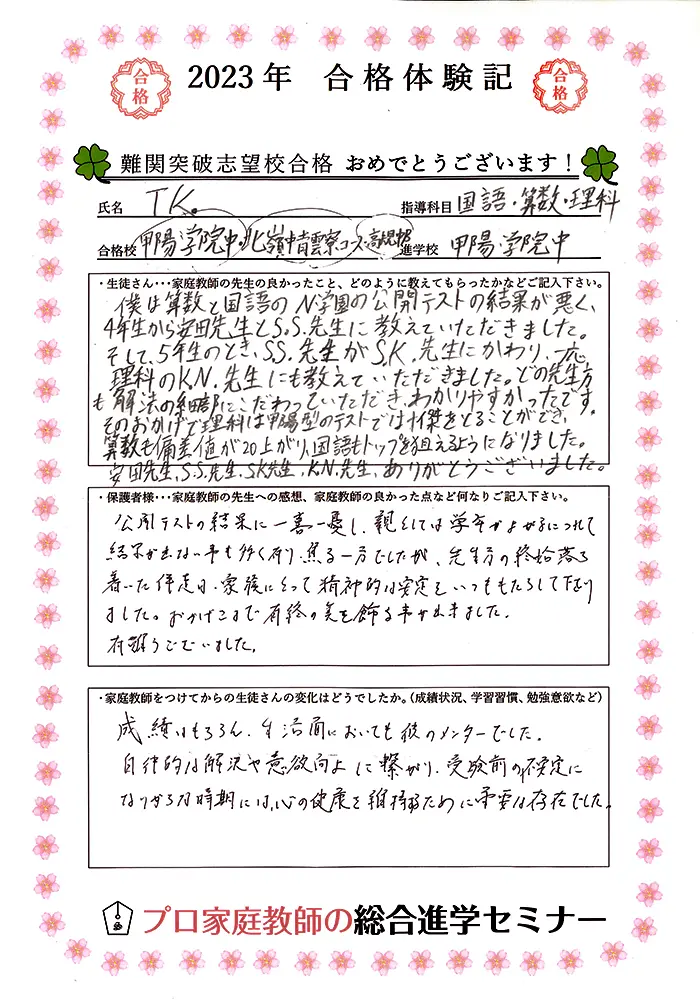 合格
2023年 合格体験記
合格
難関突破志望校合格 おめでとうございます！
氏名 T.K. 指導科目 国語・算数・理科
合格校 甲陽学院中・北嶺中青雲寮コース・高槻中B 進学校 甲陽学院中
・生徒さん･･･家庭教師の先生の良かったこと、どのように教えてもらったかなどご記入下さい。
僕は算数と国語のN学園の公開テストの結果が悪く、
4年生から安田先生とS.S.先生に教えていただきました。
そして、5年生のとき、S.S.先生がS.K.先生にかわり、一応
理科のK.N.先生にも教えていただきました。どの先生方
も解法の細部にこだわっていただき、わかりやすかったです。
そのおかげで理科は甲陽型のテストでは十傑をとることができ、
算数も偏差値が20上がり、国語もトップを狙えるようになりました。
安田先生、S.S.先生、S.K先生、K.N.先生、ありがとうございました。
・保護者様･･･家庭教師の先生への感想、家庭教師の良かった点など何なりご記入下さい。
公開テストの結果に一喜一憂し、親としては学年が上がるにつれて
結果が出ない事も多く有り、焦る一方でしたが、先生方の終始落ち
着いた伴走は、家族にとって精神的な安定をいつももたらして下さり
ました。おかげさまで有終の美を飾る事が出来ました。
有難うございました。
・家庭教師をつけてからの生徒さんの変化はどうでしたか。（成績状況、学習習慣、勉強意欲など）
成績はもちろん、生活面においても彼のメンターでした。
自律的な解決や意欲向上に繋がり、受験前の不安定に
なりがちな時期には、心の健康を維持するために重要な存在でした。
プロ家庭教師の総合進学セミナー